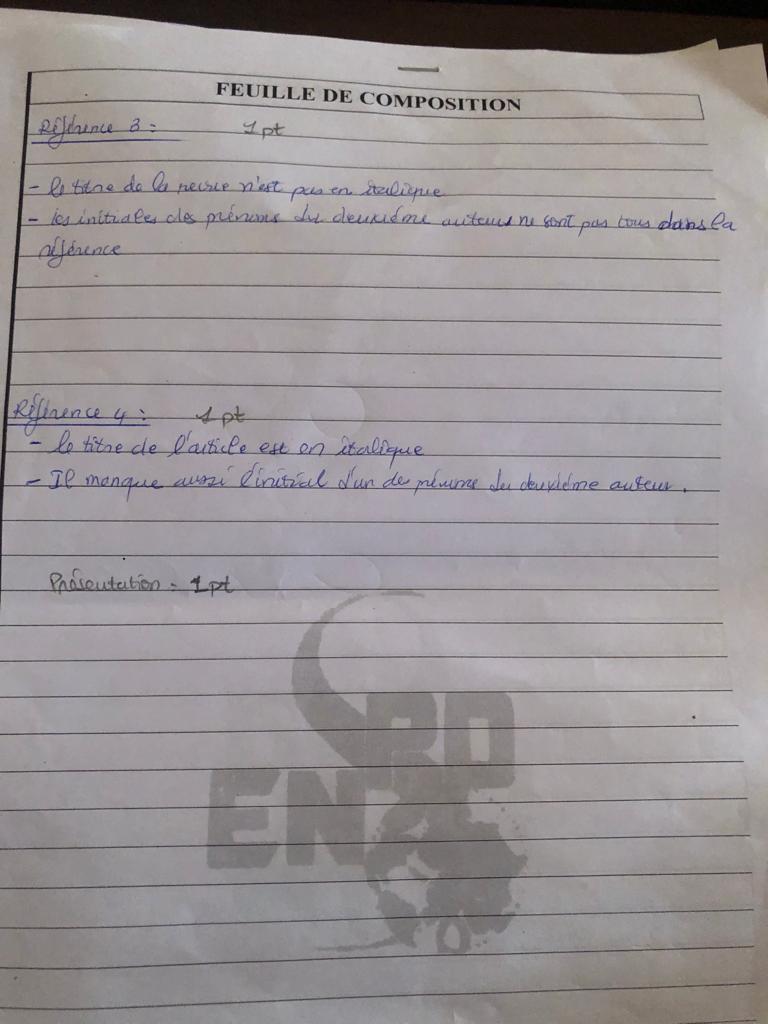 FEUILLE DE COMPOSITION
Référence 3 : 1 pt
- le titre de la revue n'est pas en italique
- les initiales des prénoms du deuxième auteurs ne sont pas tous dans la
référence
Référence 4 : 1 pt
- le titre de l'article est en italique
- Il manque aussi l'initial d'un de prénoms du deuxième auteur.
Présentation = 1 pt
RD
EN